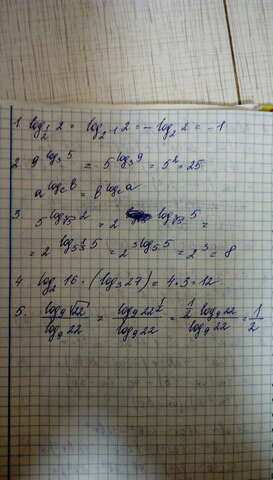 1 log_{1/2} 2 = log_{2^{-1}} 2 = -log_2 2 = -1
2 9^{log_3 5} = 5^{log_3 9} = 5^2 = 25
a^{log_c b} = b^{log_c a}
3. 5^{log_{∛5} 2} = 2^{log_{∛5} 5} =
= 2^{log_{5^{1/3}} 5} = 2^{3 log_5 5} = 2^3 = 8
4 log_2 16 · (log_3 27) = 4·3 = 12
5. \frac{log_9 √22}{log_9 22} = \frac{log_9 22^{1/2}}{log_9 22} = \frac{1/2 log_9 22}{log_9 22} = \frac{1}{2}